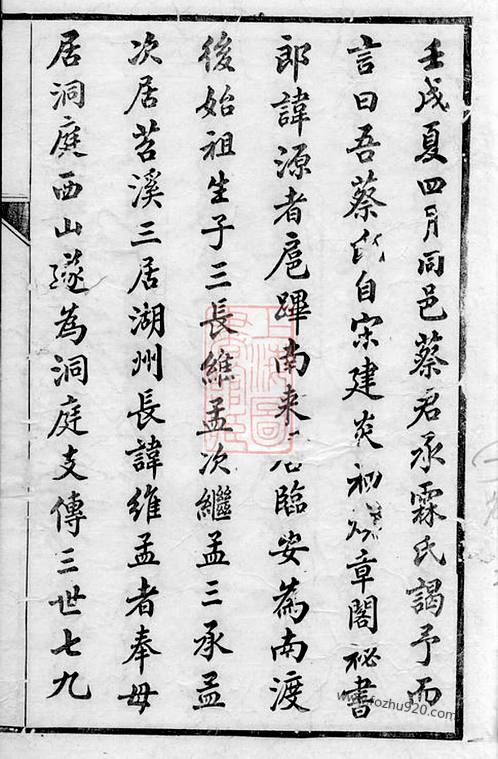 壬戌夏四月同邑蔡君承霖氏謁予而
言曰吾蔡氏自宋建炎初 章閣祕書
郎諱源者扈蹕南来 臨安為南渡
後始祖生子三長維孟次繼孟三承孟
次居苕溪三居湖州長諱維孟者奉母
居洞庭西山遂為洞庭支傳三世七九